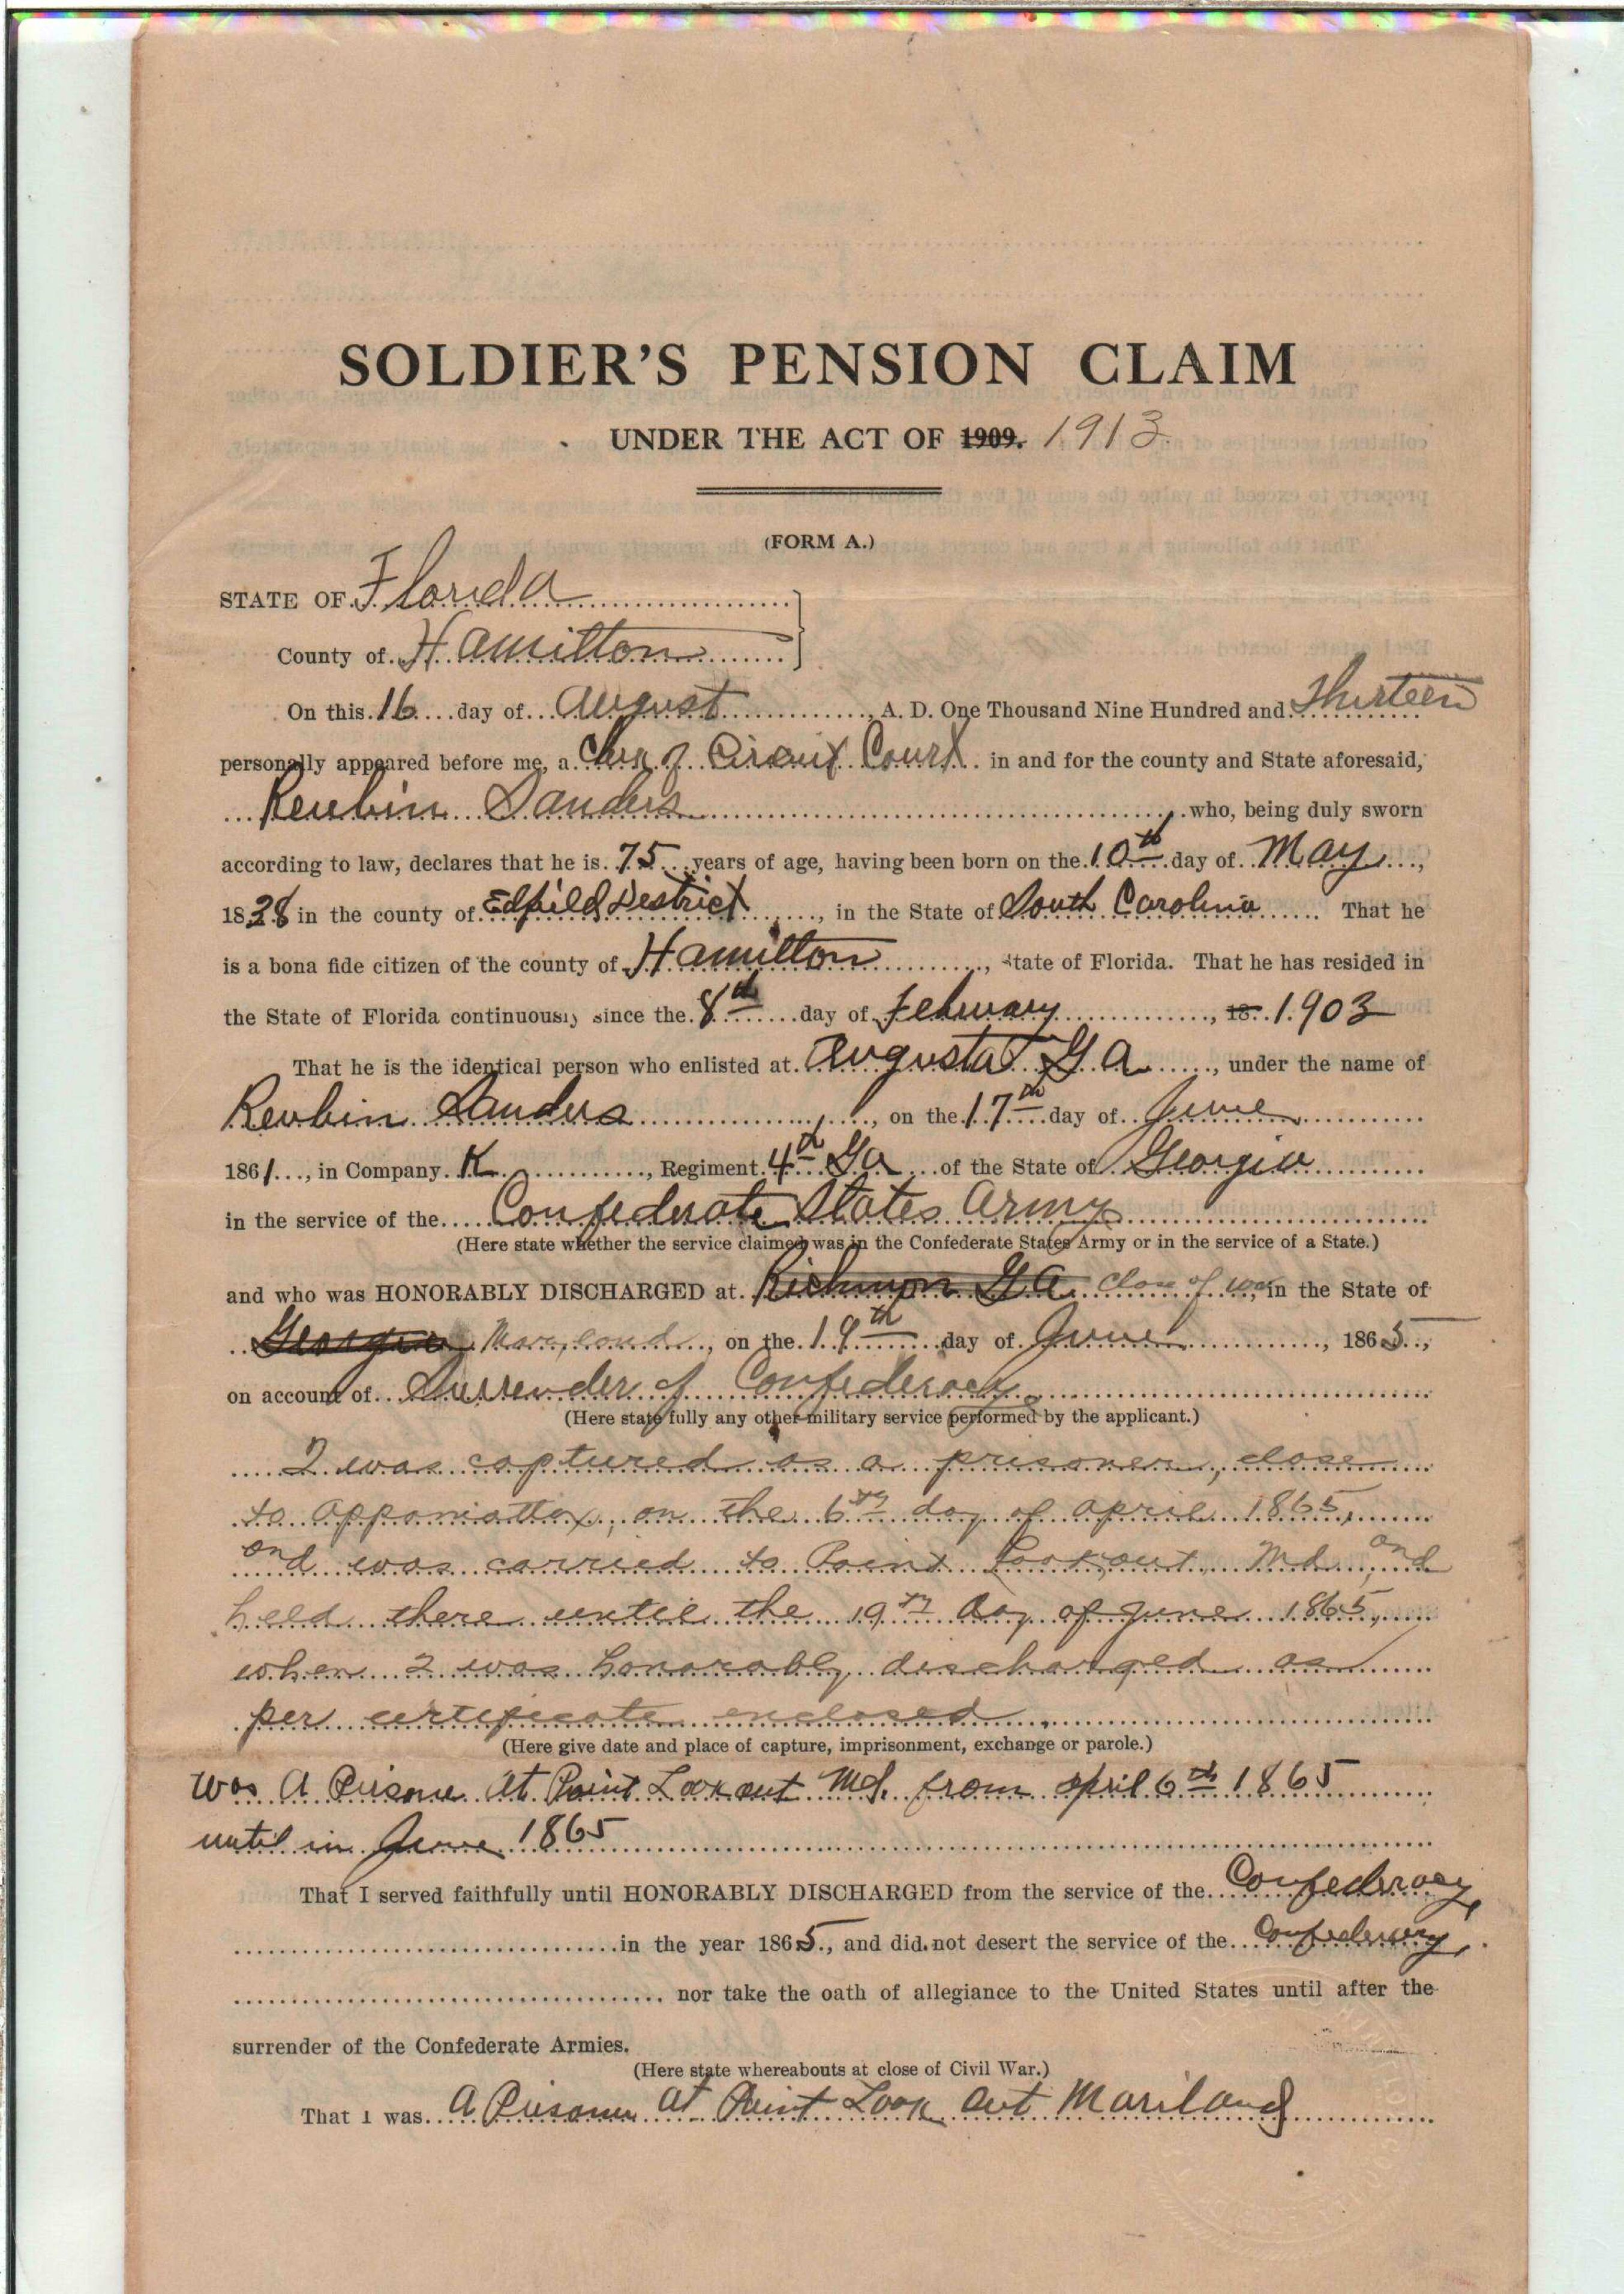 SOLDIER'S PENSION CLAIM
UNDER THE ACT OF 1909. 1913
(FORM A.)
STATE OF Florida
County of Hamilton
On this 16 day of August, A. D. One Thousand Nine Hundred and Thirteen
personally appeared before me, a Clerk of Circuit Court in and for the county and State aforesaid,
Reubin Sanders, who, being duly sworn
according to law, declares that he is 75 years of age, having been born on the 10th day of May,
1838 in the county of Edfield Destrict, in the State of South Carolina That he
is a bona fide citizen of the county of Hamilton, State of Florida. That he has resided in
the State of Florida continuously since the 8th day of February, 18 1903
That he is the identical person who enlisted at Augusta Ga, under the name of
Reubin Sanders, on the 17th day of June
1861, in Company K, Regiment 4th Ga of the State of Georgia
in the service of the Confederate States Army
(Here state whether the service claimed was in the Confederate States Army or in the service of a State.)
and who was HONORABLY DISCHARGED at Richmon Ga close of war, in the State of
Georgia Maryland, on the 19th day of June, 1865,
on account of Surrender of Confederacy.
(Here state fully any other military service performed by the applicant.)
I was captured as a prisoner, close
to Appomattox, on the 6th day of April 1865,
and was carried to Point Lookout, Md., and
held there until the 19th day of June 1865,
when I was honorably discharged as
per certificate enclosed.
(Here give date and place of capture, imprisonment, exchange or parole.)
was A Prisone At Point Look out Md. from April 6th 1865
until in June 1865
That I served faithfully until HONORABLY DISCHARGED from the service of the Confederacy,
in the year 1865, and did not desert the service of the Confederacy,
nor take the oath of allegiance to the United States until after the
surrender of the Confederate Armies.
(Here state whereabouts at close of Civil War.)
That I was A Prisoner at Point Look out Mariland